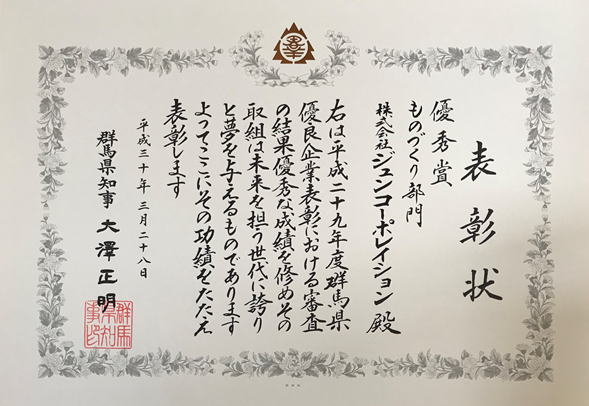 表彰状
優秀賞
ものづくり部門
株式会社ジュンコーポレイション 殿
右は平成二十九年度群馬県
優良企業表彰における審査
の結果優秀な成績を修めその
取組は未来を担う世代に誇り
と夢を与えるものであります
よってここにその功績をたたえ
表彰します
平成三十年 三月二十八日
群馬県知事 大澤正明
群馬
県知
事印